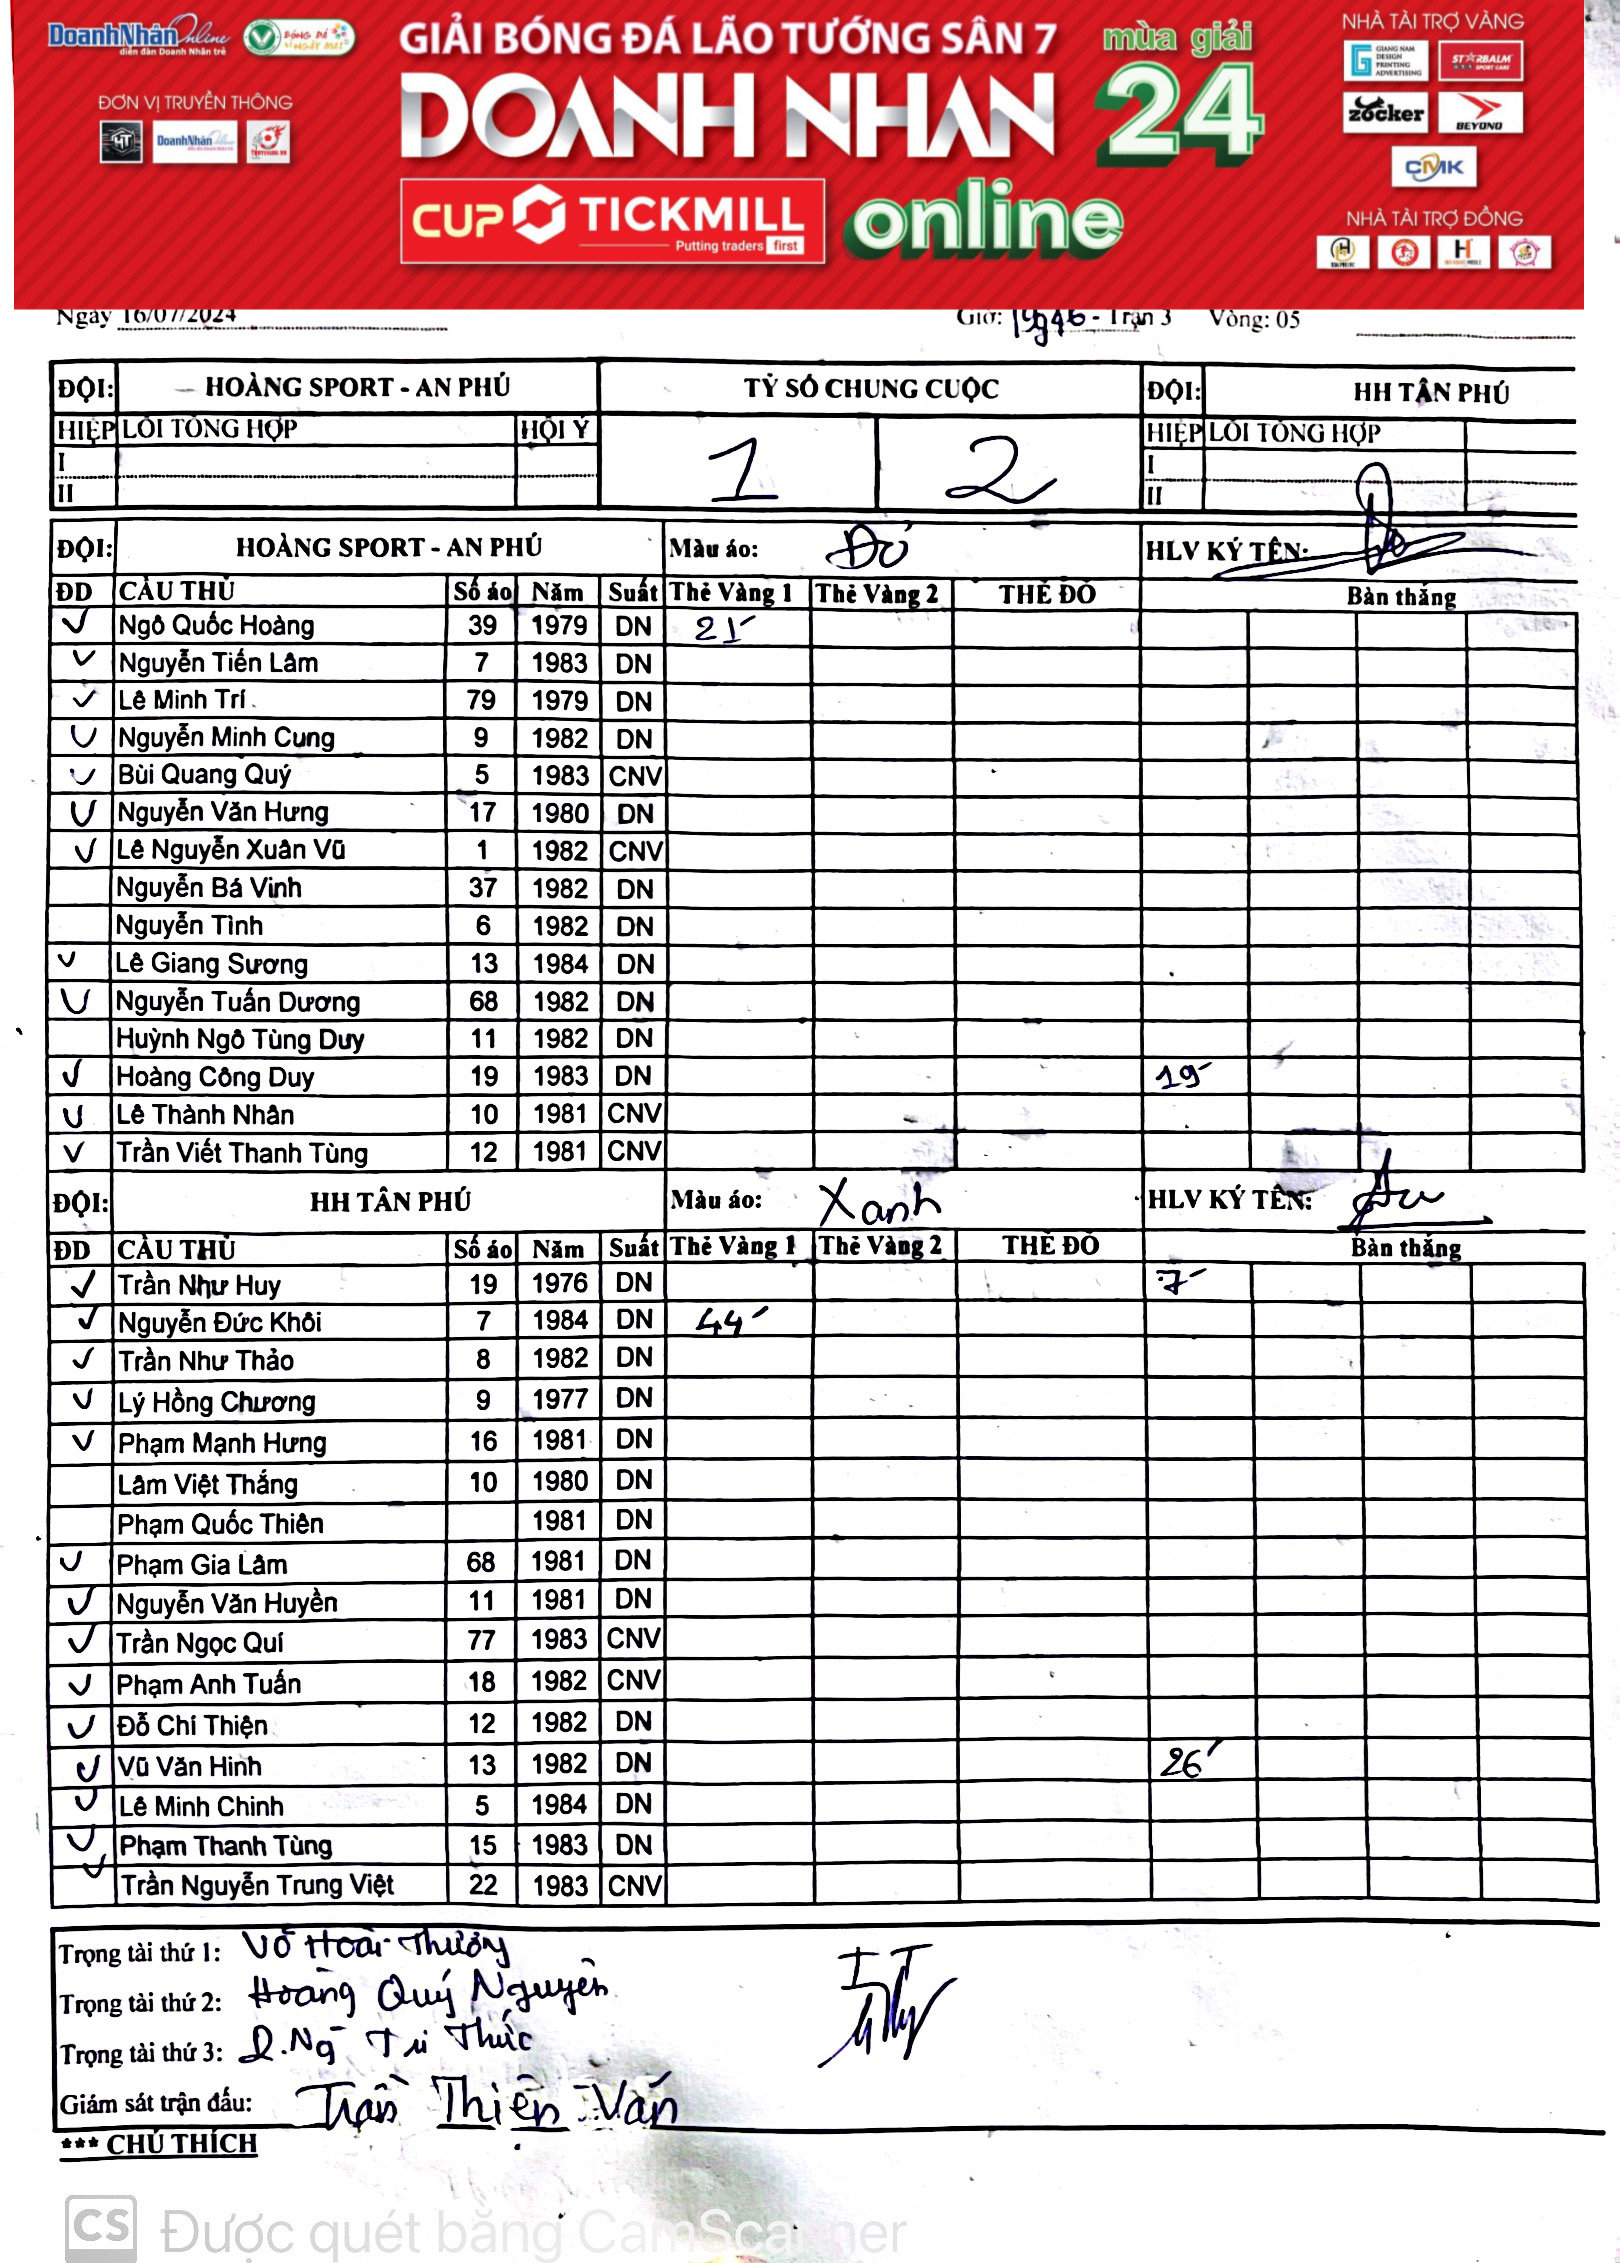 DoanhNhân Online
diễn đàn Doanh Nhân trẻ
BÓNG ĐÁ
ĐƠN VỊ TRUYỀN THÔNG
HT
DoanhNhân
GIẢI BÓNG ĐÁ LÃO TƯỚNG SÂN 7
DOANH NHAN
CUP TICKMILL
Putting traders first
mùa giải
24
online
NHÀ TÀI TRỢ VÀNG
GIANG NAM
DESIGN
PRINTING
ADVERTISING
STARBALM
SPORT CARE
zocker
BEYOND
CMK
NHÀ TÀI TRỢ ĐỒNG
Ngày 16/07/2024 Giờ: 19g46 - Trận 3 Vòng: 05
ĐỘI: HOÀNG SPORT - AN PHÚ TỶ SỐ CHUNG CUỘC ĐỘI: HH TÂN PHÚ
HIỆP LỖI TỔNG HỢP HỘI Ý 1 2 HIỆP LỖI TỔNG HỢP
I I
II II
ĐỘI: HOÀNG SPORT - AN PHÚ Màu áo: Đỏ HLV KÝ TÊN:
ĐD CẦU THỦ Số áo Năm Suất Thẻ Vàng 1 Thẻ Vàng 2 THẺ ĐỎ Bàn thắng
Ngô Quốc Hoàng 39 1979 DN 21'
Nguyễn Tiến Lâm 7 1983 DN
Lê Minh Trí 79 1979 DN
Nguyễn Minh Cung 9 1982 DN
Bùi Quang Quý 5 1983 CNV
Nguyễn Văn Hưng 17 1980 DN
Lê Nguyễn Xuân Vũ 1 1982 CNV
Nguyễn Bá Vinh 37 1982 DN
Nguyễn Tình 6 1982 DN
Lê Giang Sương 13 1984 DN
Nguyễn Tuấn Dương 68 1982 DN
Huỳnh Ngô Tùng Duy 11 1982 DN
Hoàng Công Duy 19 1983 DN 19'
Lê Thành Nhân 10 1981 CNV
Trần Viết Thanh Tùng 12 1981 CNV
ĐỘI: HH TÂN PHÚ Màu áo: Xanh HLV KÝ TÊN:
ĐD CẦU THỦ Số áo Năm Suất Thẻ Vàng 1 Thẻ Vàng 2 THẺ ĐỎ Bàn thắng
Trần Như Huy 19 1976 DN 7'
Nguyễn Đức Khôi 7 1984 DN 44'
Trần Như Thảo 8 1982 DN
Lý Hồng Chương 9 1977 DN
Phạm Mạnh Hưng 16 1981 DN
Lâm Việt Thắng 10 1980 DN
Phạm Quốc Thiên 1981 DN
Phạm Gia Lâm 68 1981 DN
Nguyễn Văn Huyền 11 1981 DN
Trần Ngọc Quí 77 1983 CNV
Phạm Anh Tuấn 18 1982 CNV
Đỗ Chí Thiện 12 1982 DN
Vũ Văn Hinh 13 1982 DN 26'
Lê Minh Chinh 5 1984 DN
Phạm Thanh Tùng 15 1983 DN
Trần Nguyễn Trung Việt 22 1983 CNV
Trọng tài thứ 1: Võ Hoài Thương
Trọng tài thứ 2: Hoàng Quý Nguyên
Trọng tài thứ 3: Tri Thức
Giám sát trận đấu: Trần Thiện Văn
*** CHÚ THÍCH
CS Được quét bằng CamScanner